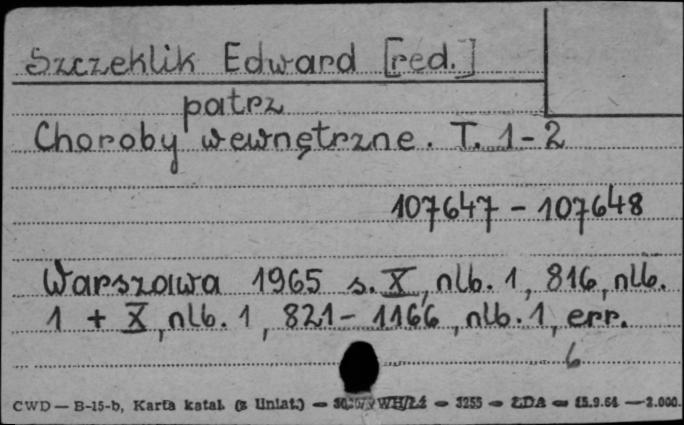 Szczeklik Edward [red.]
patrz
Choroby wewnętrzne. T. 1-2
107647 - 107648
Warszawa 1965 s. X, nlb. 1, 816, nlb.
1 + X, nlb. 1, 821- 1166, nlb. 1, err.
6
CWD — B-15-b, Karta katal. (z liniat.) — WH/Łź — 3255 — ŁDA — 15.9.64 — 2.000.